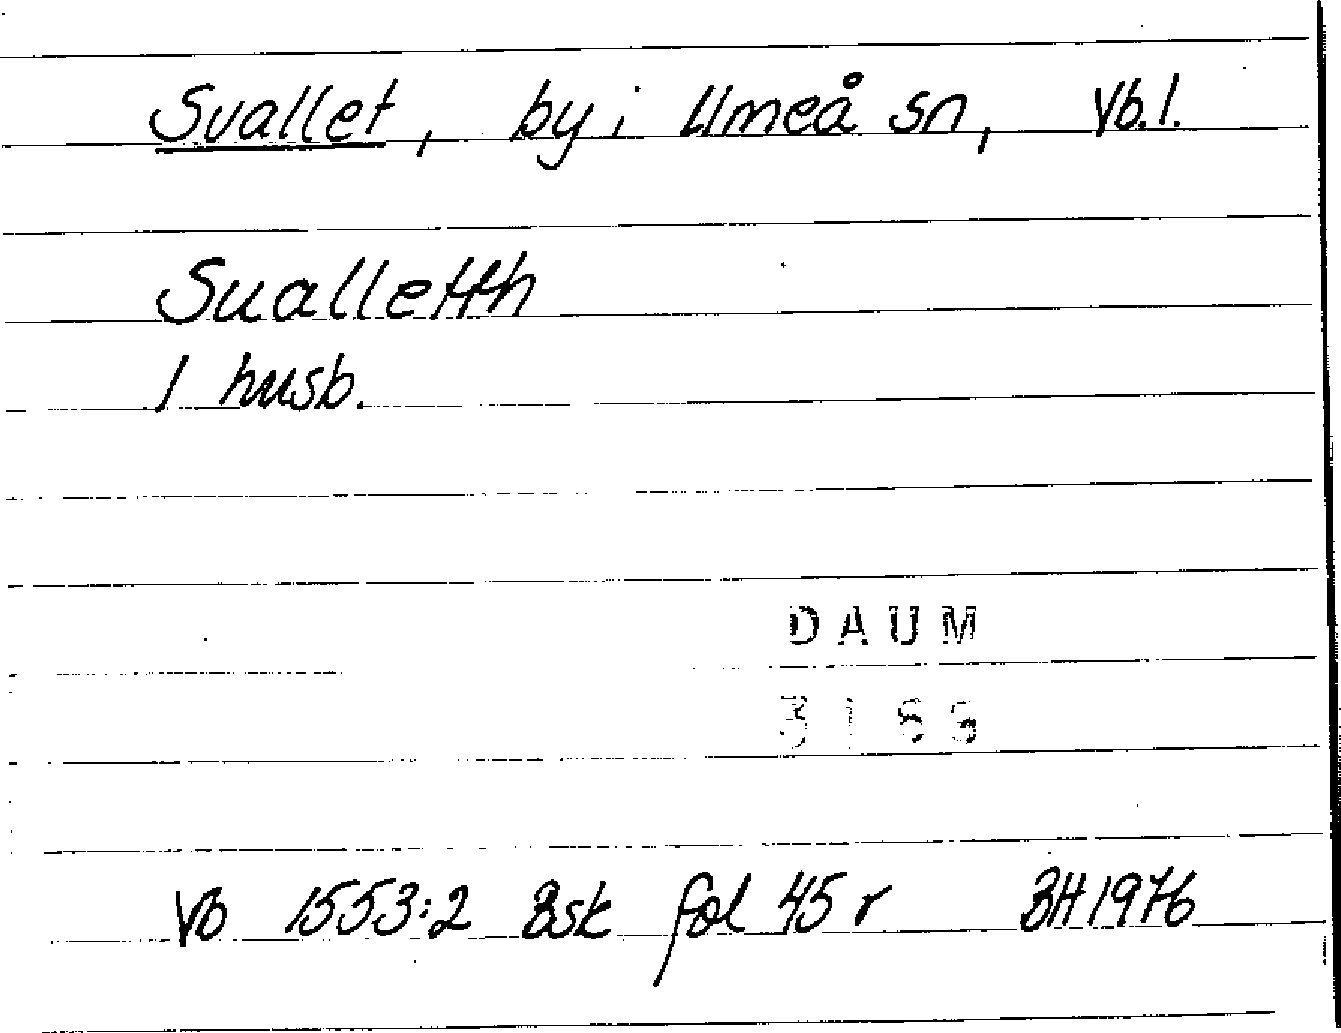 Svallet, by i Umeå sn, Vb.l.
Sualletth
1 husb.
DAUM
Vb 1553:2 Bsk fol 45 r BH 1976